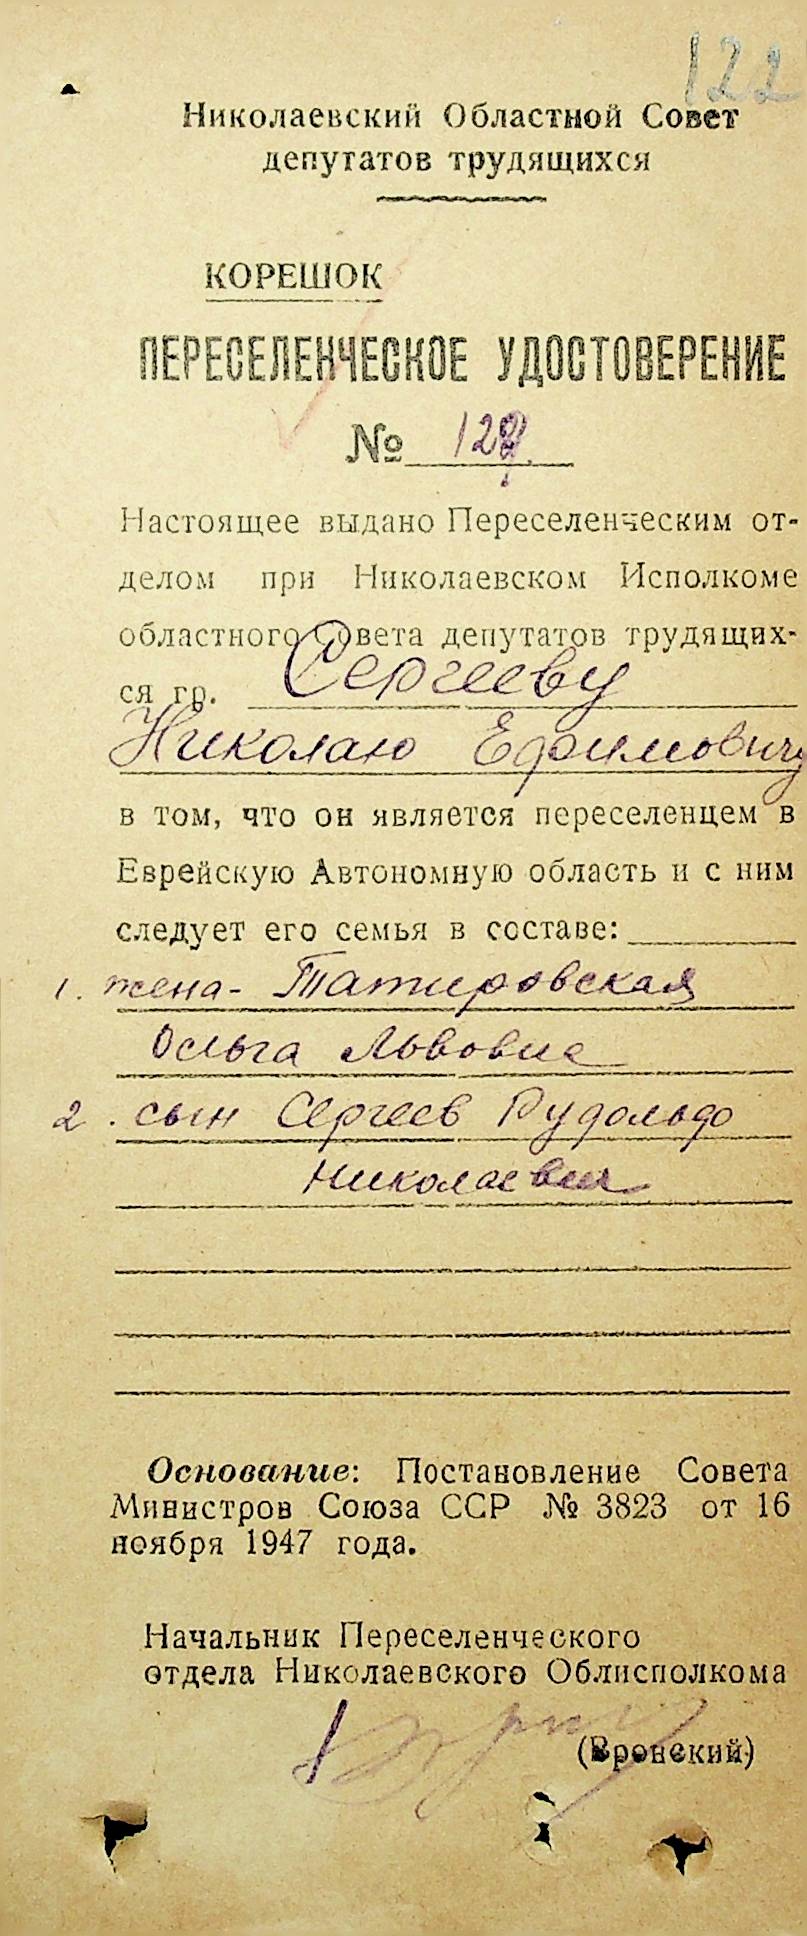 122
Николаевский Областной Совет
депутатов трудящихся
КОРЕШОК
ПЕРЕСЕЛЕНЧЕСКОЕ УДОСТОВЕРЕНИЕ
№ 127
Настоящее выдано Переселенческим от-
делом при Николаевском Исполкоме
областного Совета депутатов трудящих-
ся гр. Сергееву
Николаю Ефимовичу
в том, что он является переселенцем в
Еврейскую Автономную область и с ним
следует его семья в составе:
1. жена - Татировская
Ольга Львовна
2. сын Сергеев Рудольф
Николаевич
Основание: Постановление Совета
Министров Союза ССР № 3823 от 16
ноября 1947 года.
Начальник Переселенческого
отдела Николаевского Облисполкома
(Вронский)